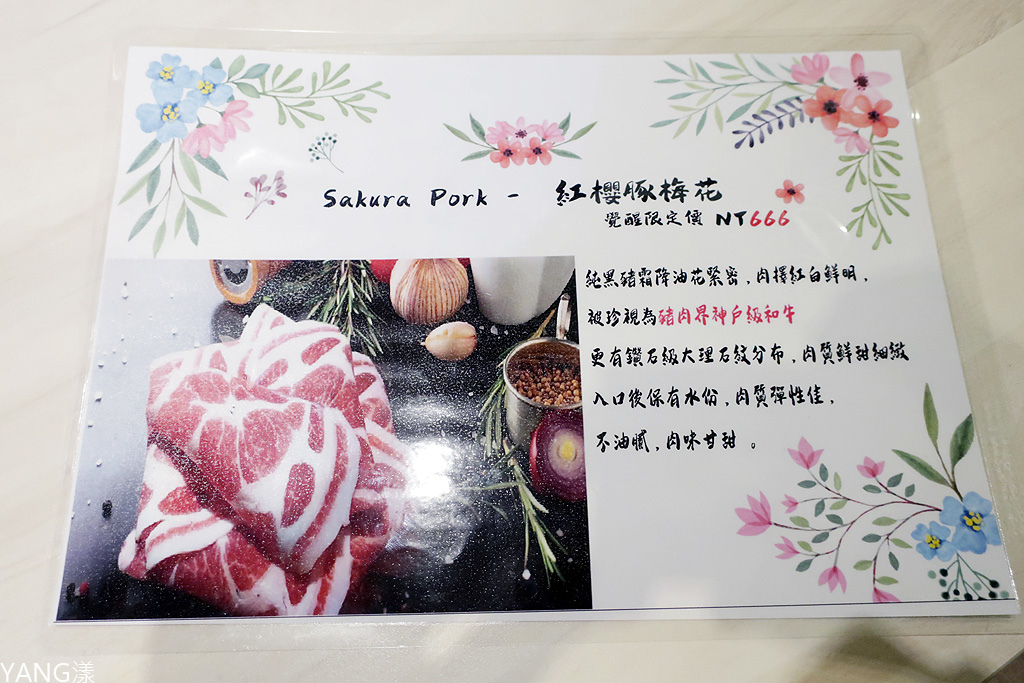 Sakura Pork - 紅櫻豚梅花
覺醒限定價 NT666
純黑豬霜降油花緊密，肉擇紅白鮮明，
被珍視為豬肉界神戶級和牛
更有鑽石級大理石紋分布，肉質鮮甜細緻
入口後保有水份，肉質彈性佳，
不油膩，肉味甘甜。
YANG漾